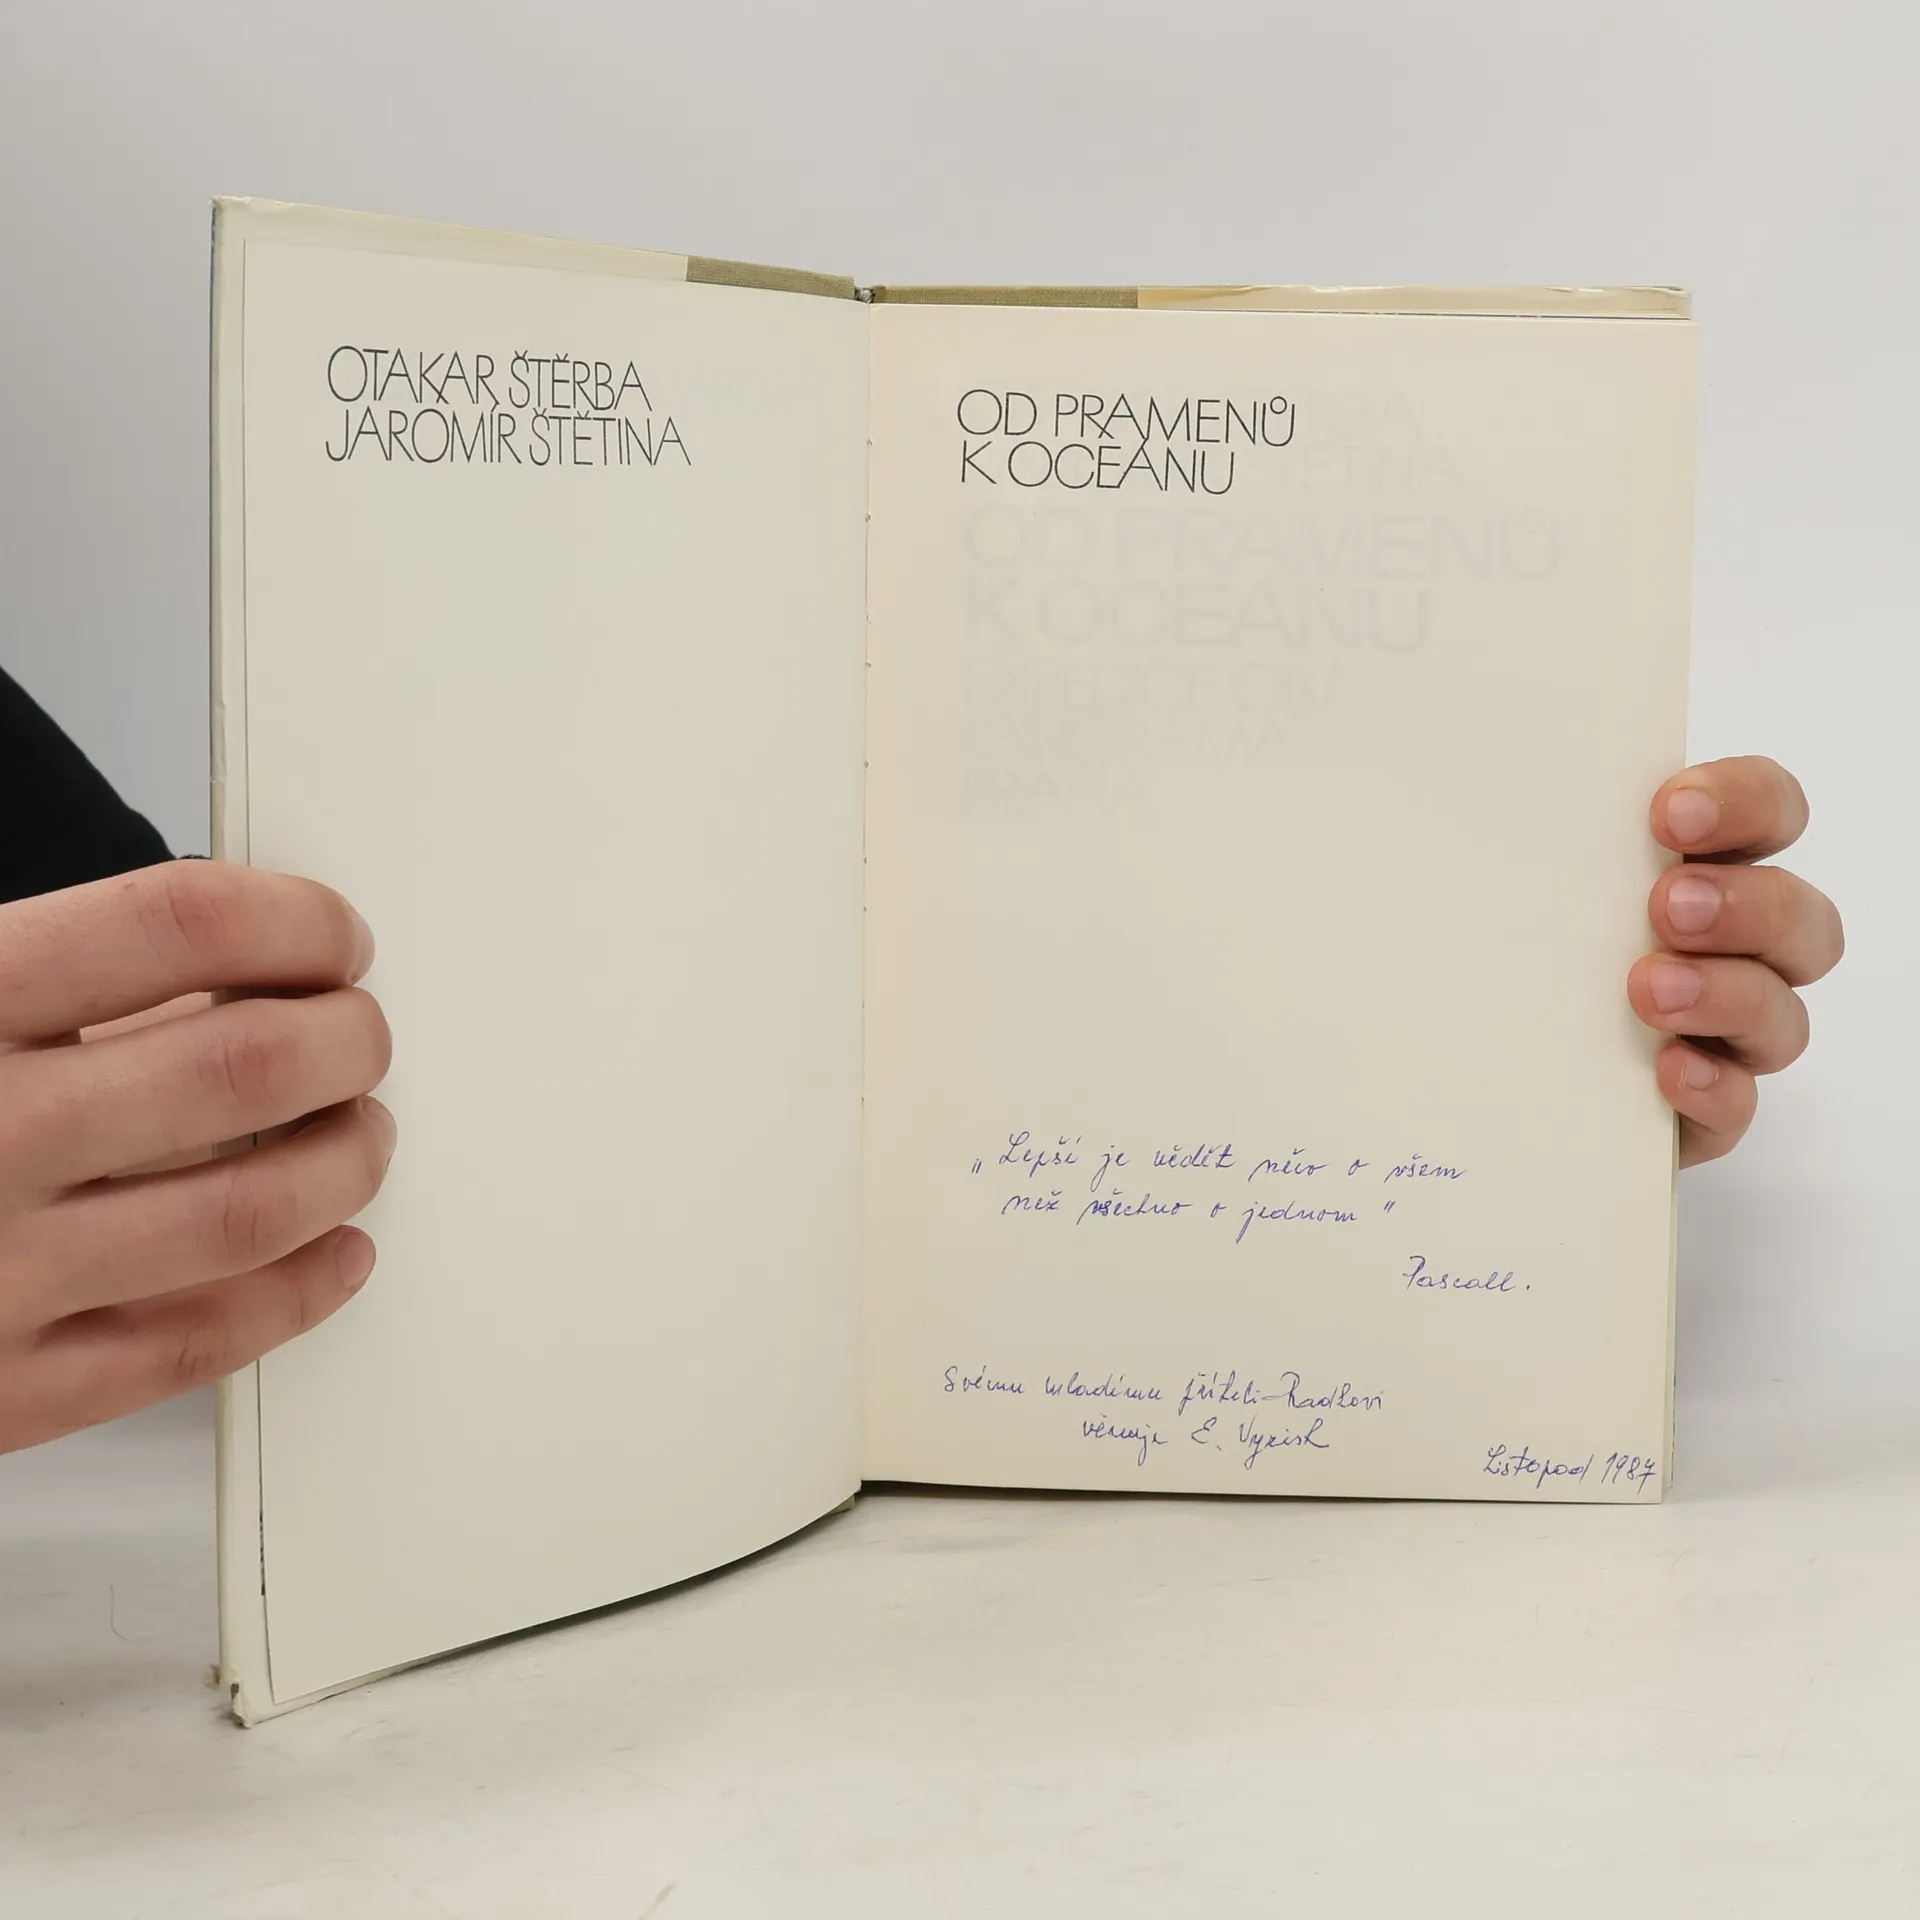 OTAKAR ŠTĚRBA
JAROMÍR ŠTĚTINA
OD PRAMENŮ
K OCEÁNU
OD PRAMENŮ
K OCEÁNU
PANORAMA
PRAHA
„Lepší je vědět něco o všem
než všechno o jednom"
Pascall.
Svému mladému příteli - Radkovi
věnuje E.
Listopad 1987